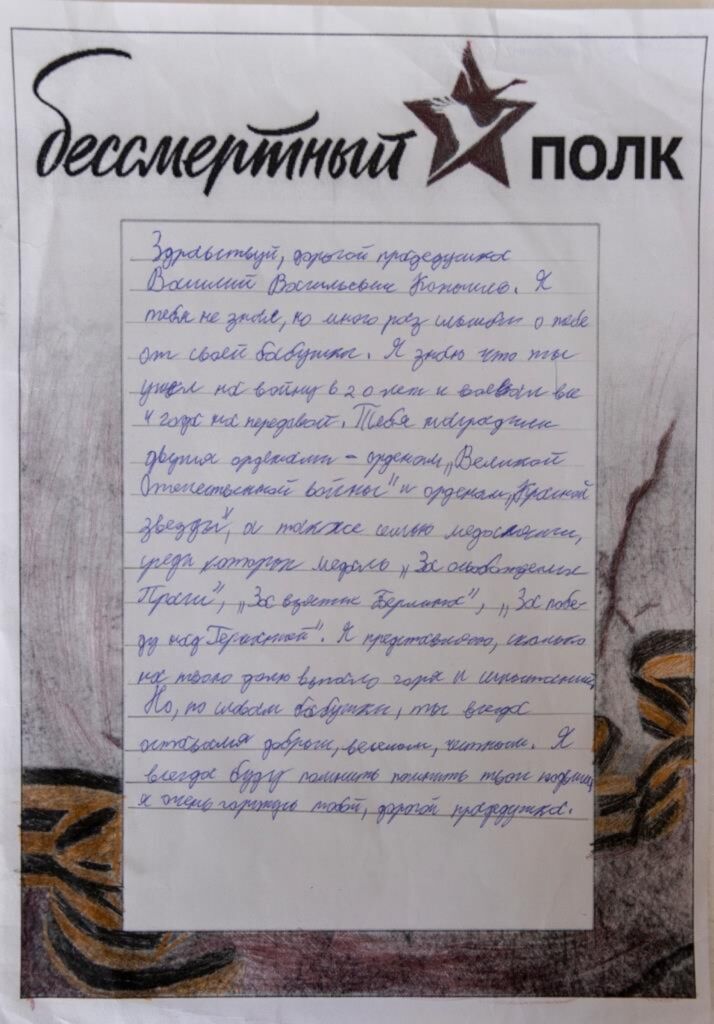 бессмертный ПОЛК
Здравствуй, дорогой прадедушка
Василий Васильевич
Я
тебя не знал, но много раз слышал о тебе
от своей бабушки. Я знаю что ты
ушел на войну в 20 лет и воевал все
4 года на передовой. Тебя наградили
двумя орденами – орденом „Великой
Отечественной войны" и орденом „Красной
звезды", а также семью медалями,
среди которых медаль „За освобождение
Праги", „За взятие Берлина", „За побе-
ду над Германией". Я представляю, сколько
на твою долю выпало горя и испытаний,
Но, по словам бабушки, ты всегда
оставался добрым, веселым, честным. Я
всегда буду помнить помнить твои
я очень горжусь тобой, дорогой прадедушка.